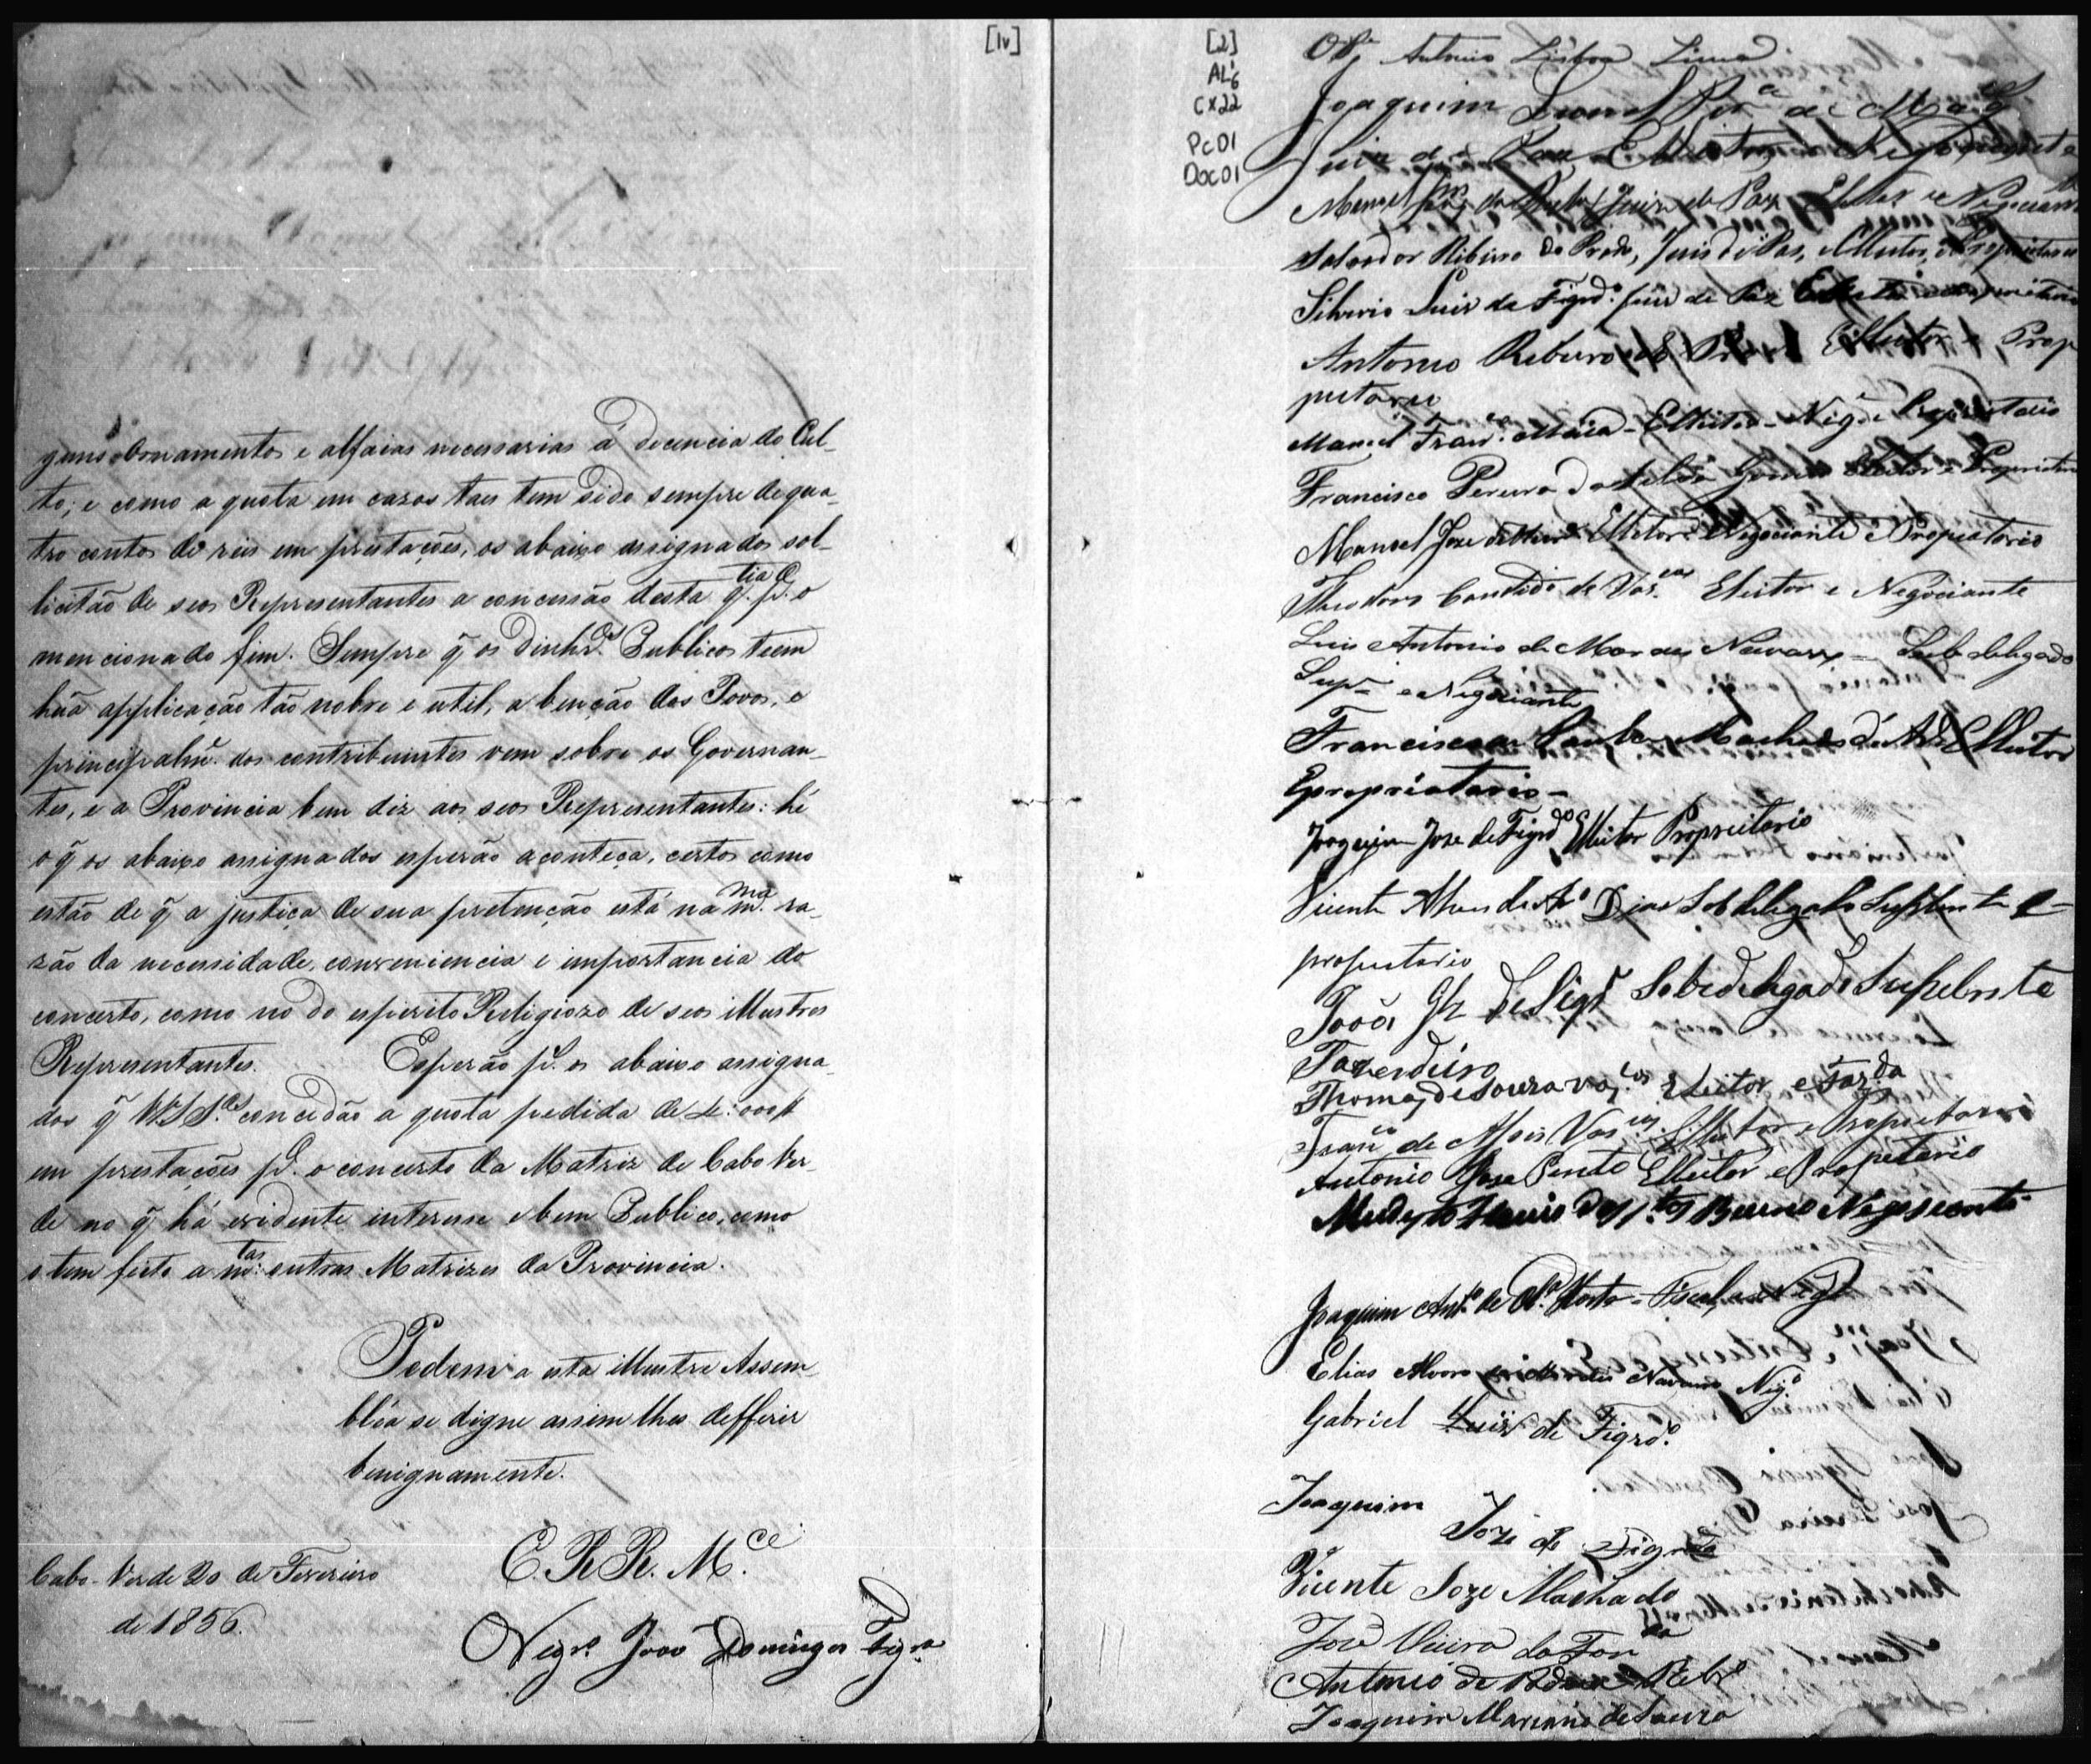 [1v]
guns ornamentos e alfaias necessarias á decencia do Cul-
to; e como a quota em cazos taes tem sido sempre de qua-
tro contos de reis em prestações, os abaixo assignados sol-
licitão de seos Representantes a concessão desta q.tia p.a o
mencionado fim. Sempre q̃ os dinhr.os Publicos teem
huã applicação tão nobre e util, a benção dos Povos, e
principalm.e dos contribuintes vem sobre os Governan-
tes, e a Provincia bem diz aos seos Representantes: hé
o q̃ os abaixo assignados esperão aconteça, certos como
estão de q̃ a justiça de sua pretenção está na m.ma ra-
zão da necessidade, conveniencia e importancia do
concerto, como no do espirito Religiozo de seos illustres
Representantes. Esperão p.s os abaixo assigna-
dos q̃ VV.S S.as concedão a quota pedida de 4:000$
em prestações p.a o concerto da Matriz de Cabo Ver-
de no q̃ há evidente interesse e bem Publico, como
o tem feito a m.tas outras Matrizes da Provincia.
Pedem a esta illustre Assem-
bléa se digne assim lhes defferir
benignamente.
E. R. R. M.ce
Cabo-Verde 20 de Fevereiro
de 1856.
Neg.e João Domingos Figr.a
[2]
AL.6
CX22
Pc01
Doc01
Antonio Lisboa Lima
Joaquim Leonel Per.a de
Juiz de Paz
Manoel da Juiz de Paz Eleitor e Negociante
Salvador Ribeiro do Prado, Juis de Pas, Elleitor, e Propietario
Silverio Luis de Figrd.o Juiz de Paz
Antonio Ribeiro Elleitor e Prop
pietario
Manoel Fran.co Maia - Elleitor - Neg.e e Propietario
Francisco Pereira da Silva Gomes Eleitor e Proprietario
Manoel Joze Elleitor Negociante e Propietario
Theodoro Candido de Vas.cos Eleitor e Negociante
Luis Antonio de Moraes Navarro - Sub delegado
Sup.te e Negociante
Francisco Machado de Elleitor
Epropriatario -
Joaquim Joze de Figrd.o Elleitor Proprietario
Vicente Alves de Dias Sobdelegado Suplente e
propietario
João Glz de Siqr.a Sobdelegado Suplente
Fazendeiro
Thomas de Souza Vas.cos Eleitor e Faz.do
Fran.co de Assis Vas.cos Elleitor e Propietario
Antonio Joze Pinto Elleitor e Propetario
Modesto Bueno Negociante
Joaquim Ant.o de Ol.a Horta - Fiscal, e Neg.e
Elias Alvaro de Moraes Navarro Neg.e
Gabriel Luiz de Figrd.o
Joaquim
Jozé de Figrdo
Vicente Joze Machado
José Vieira da Fon.ca
Antonio de Padua Rib.o
Joaquim Mariano de Souza